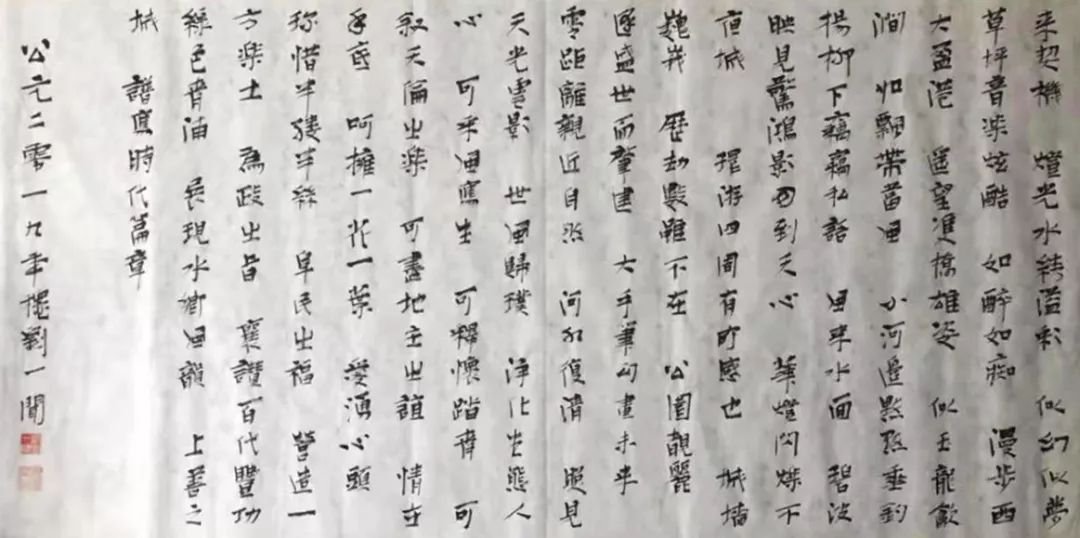 来契機 燈光水結溢彩 似幻似夢
草坪音樂炫酷 如醉如痴 漫步西
大盈港 遥望橋雄姿 似玉龍飲
澗 如飄帶當風 小河邊點點垂釣
楊柳下竊竊私語 風来水面 碧波
映見驚鴻影 到天心 華燈閃爍不
夜城 環游四周有所感也 城墙
巍峩 歷劫毀雖不在 公園靚麗
逐盛世而肇建 大手筆勾畫未来
零距離親近自然 河水復清 照見
天光雲影 世風歸璞 净化生態人
心 可采風寫生 可釋懷踏青 可
叙天倫之樂 可盡地主之誼 情在
手底 呵擁一花一葉 愛湧心頭
珍惜半縷半絲 阜民之福 營造一
方樂土 為政之旨 襄讚百代豐功
綠色青浦 展現水鄉風韻 上善之
城 譜寫時代篇章
公元二零一九年劉一聞